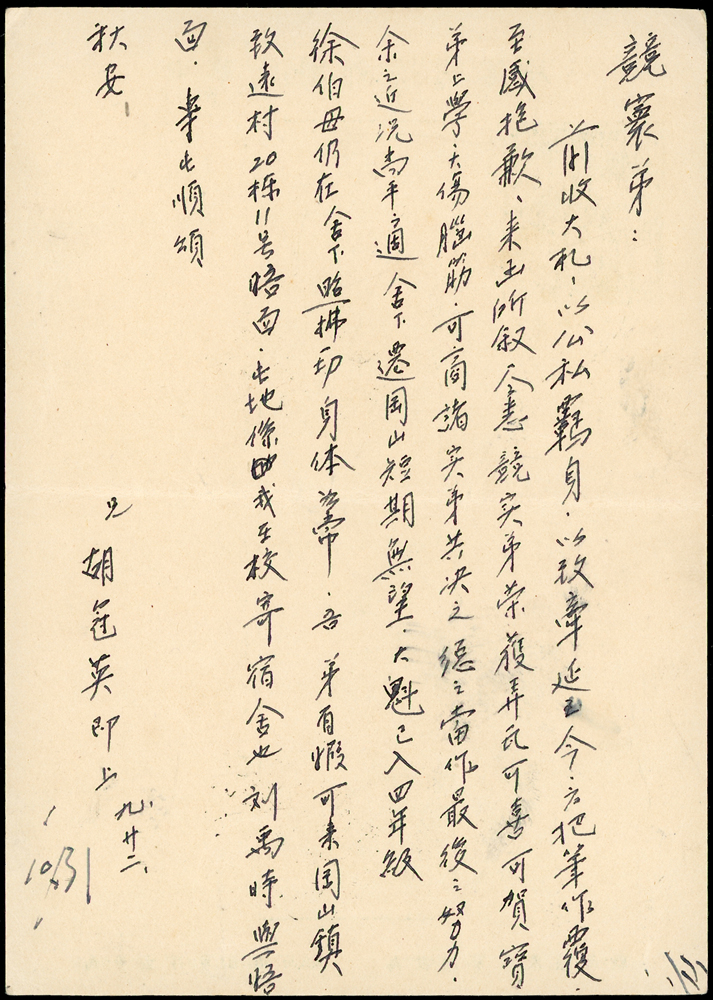 競寰弟：
前收大札，以公私羈身，以致牽延至今，方把筆作覆，
至感抱歉，來函所叙今悉競实弟榮獲弄瓦可喜可賀，寶
弟上學，大傷腦筋，可商諸实弟共决之，總之當作最後之努力，
余之近況尚平適，舍下遷岡山短期無望，大魁已入四年級
徐伯母仍在舍下照拂，身体如常，吾弟有暇可來岡山鎮
致遠村20栋11号晤面，此地係我在校寄宿舍也刘禹時與晤
面，耑此順頌
秋安，
兄胡冠英即上九，廿二，
10/31